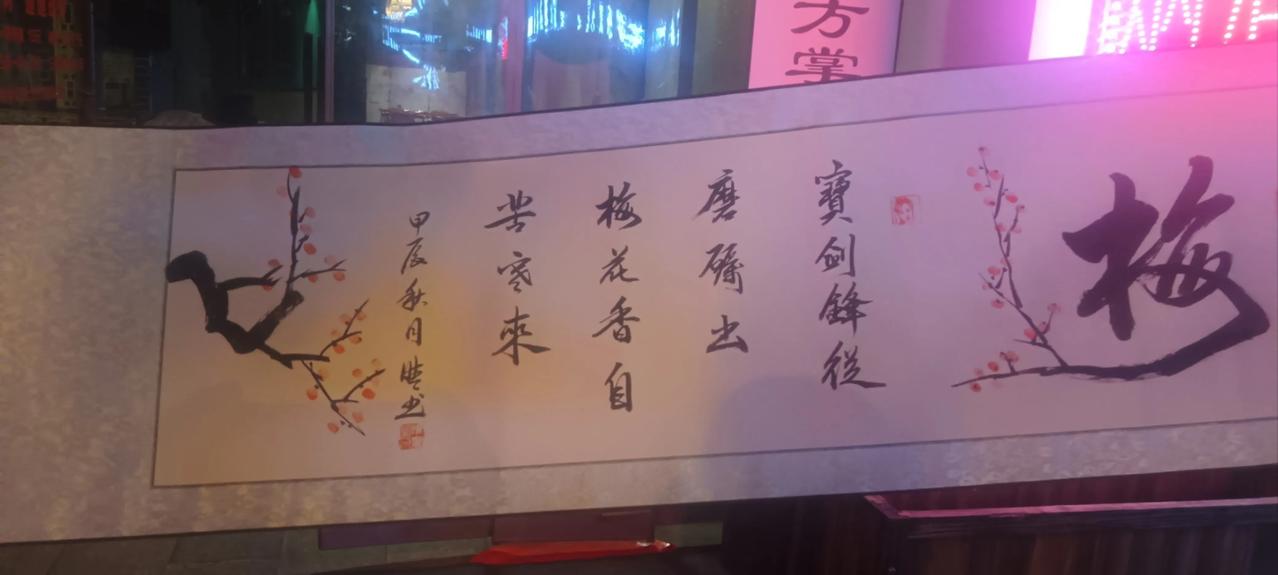 梅
寶劍鋒從
磨礪出
梅花香自
苦寒來
甲辰秋月
書
方掌